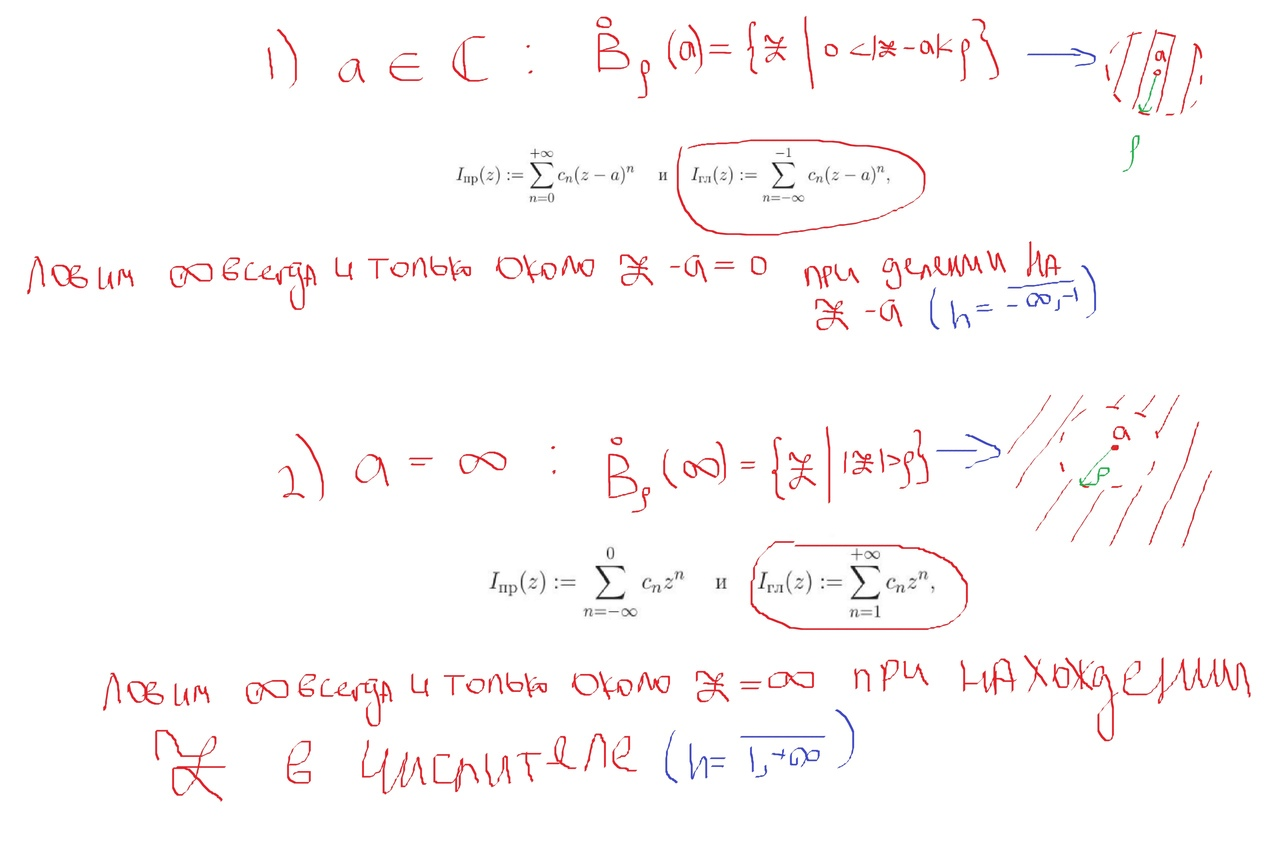 1) a ∈ ℂ : B̊ρ(a) = {z | 0 < |z - a| < ρ} → a
ρ
Iпр(z) := ∑_{n=0}^{+∞} cₙ(z − a)ⁿ и Iгл(z) := ∑_{n=−∞}^{−1} cₙ(z − a)ⁿ,
ловим ∞ всегда и только около z - a = 0 при делении на
z - a (n = \overline{-∞, -1})
2) a = ∞ : B̊ρ(∞) = {z | |z| > ρ} → a
ρ
Iпр(z) := ∑_{n=−∞}^{0} cₙzⁿ и Iгл(z) := ∑_{n=1}^{+∞} cₙzⁿ,
ловим ∞ всегда и только около z = ∞ при нахождении
z в числителе (n = \overline{1, +∞})